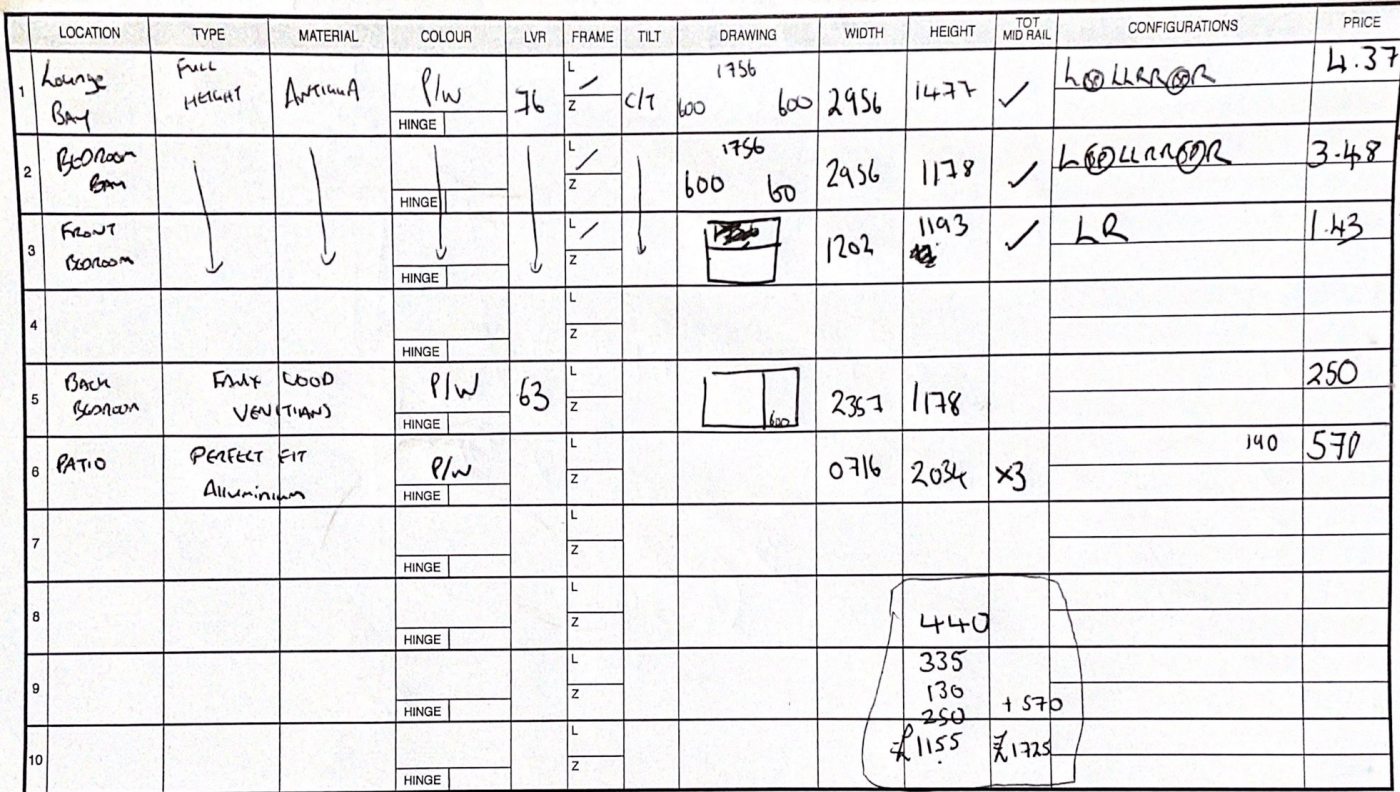 LOCATION TYPE MATERIAL COLOUR LVR FRAME TILT DRAWING WIDTH HEIGHT TOT MID RAIL CONFIGURATIONS PRICE
1 Lounge Bay FULL HEIGHT ANTIGUA P/W HINGE 76 L / Z C/T 1756 600 600 2956 1477 ✓ L⊗LLRR⊗R 4.37
2 BEDROOM BAY HINGE L / Z 1756 600 60 2956 1178 ✓ 3.48
3 FRONT BEDROOM HINGE L / Z 1202 1193 ✓ LR 1.43
4 HINGE L Z
5 BACK BEDROOM FAUX WOOD VENITIANS P/W HINGE 63 L Z 600 2357 1178 250
6 PATIO PERFECT FIT Alluminium P/W HINGE L Z 0716 2034 x3 190 570
7 HINGE L Z
8 HINGE L Z 440
9 HINGE L Z 335
130
250 + 570
10 HINGE L Z £1155 £1725